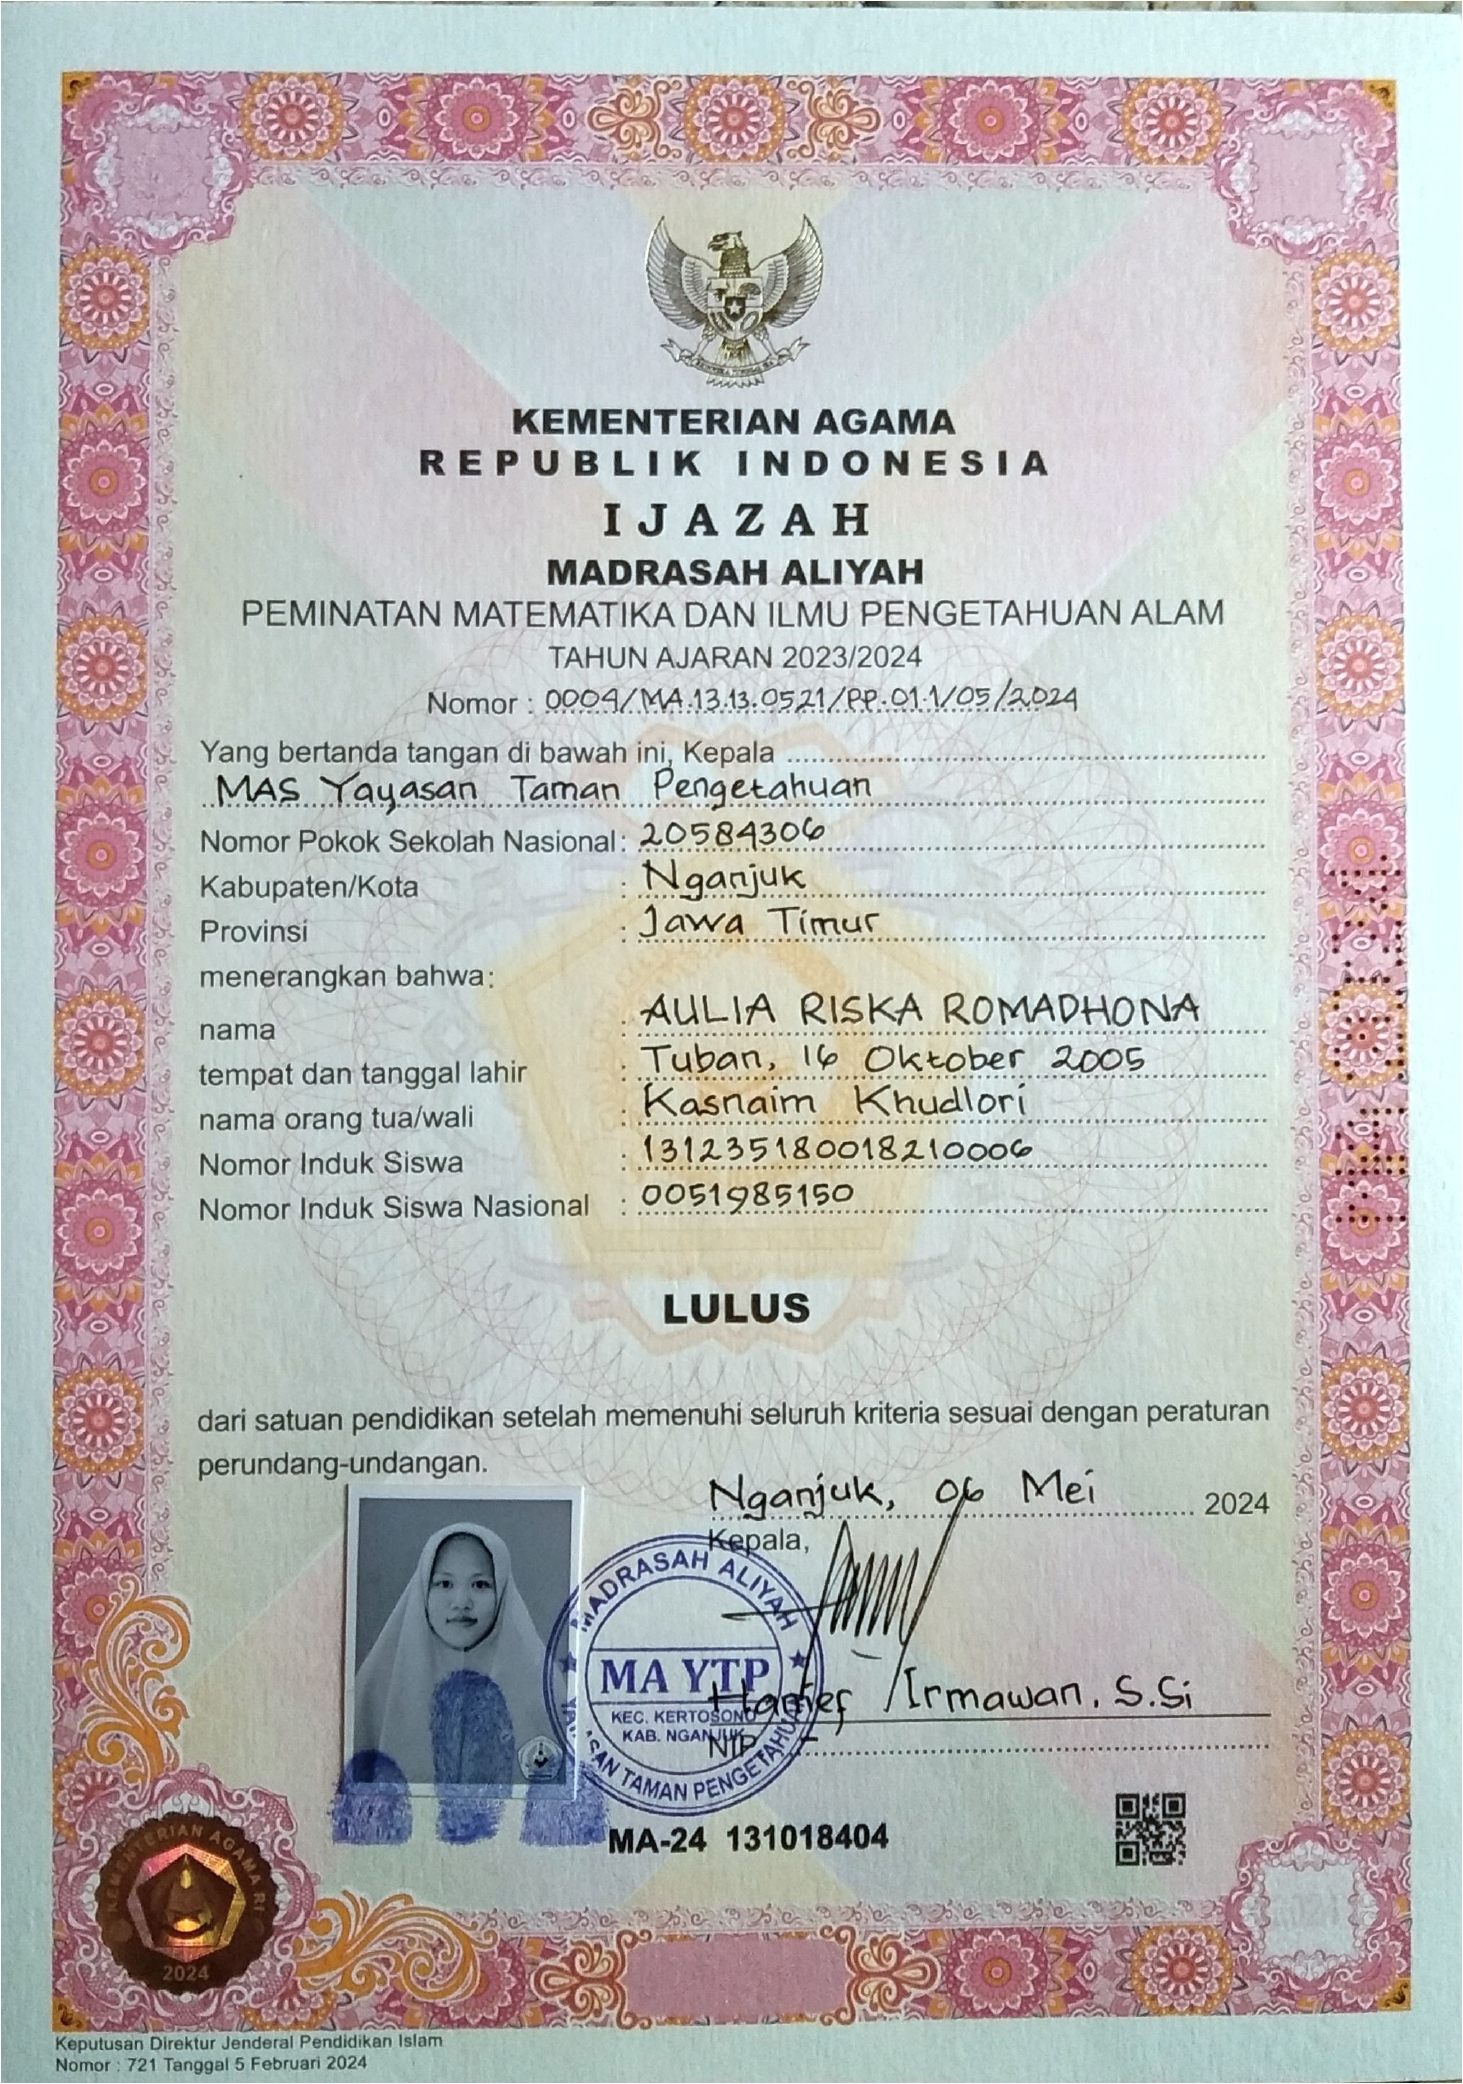 KEMENTERIAN AGAMA
REPUBLIK INDONESIA
IJAZAH
MADRASAH ALIYAH
PEMINATAN MATEMATIKA DAN ILMU PENGETAHUAN ALAM
TAHUN AJARAN 2023/2024
Nomor : 0004/MA.13.13.0521/PP.01.1/05/2024
Yang bertanda tangan di bawah ini, Kepala
MAS Yayasan Taman Pengetahuan
Nomor Pokok Sekolah Nasional : 20584306
Kabupaten/Kota : Nganjuk
Provinsi : Jawa Timur
menerangkan bahwa:
nama : AULIA RISKA ROMADHONA
tempat dan tanggal lahir : Tuban, 16 Oktober 2005
nama orang tua/wali : Kasnaim Khudlori
Nomor Induk Siswa : 131235180018210006
Nomor Induk Siswa Nasional : 0051985150
LULUS
dari satuan pendidikan setelah memenuhi seluruh kriteria sesuai dengan peraturan
perundang-undangan.
Nganjuk, 06 Mei 2024
Kepala,
MADRASAH ALIYAH
MA YTP
KEC. KERTOSONO
KAB. NGANJUK
YAYASAN TAMAN PENGETAHUAN
Hanief Irmawan, S.Si
NIP. -
MA-24 131018404
KEMENTERIAN AGAMA RI
2024
Keputusan Direktur Jenderal Pendidikan Islam
Nomor : 721 Tanggal 5 Februari 2024